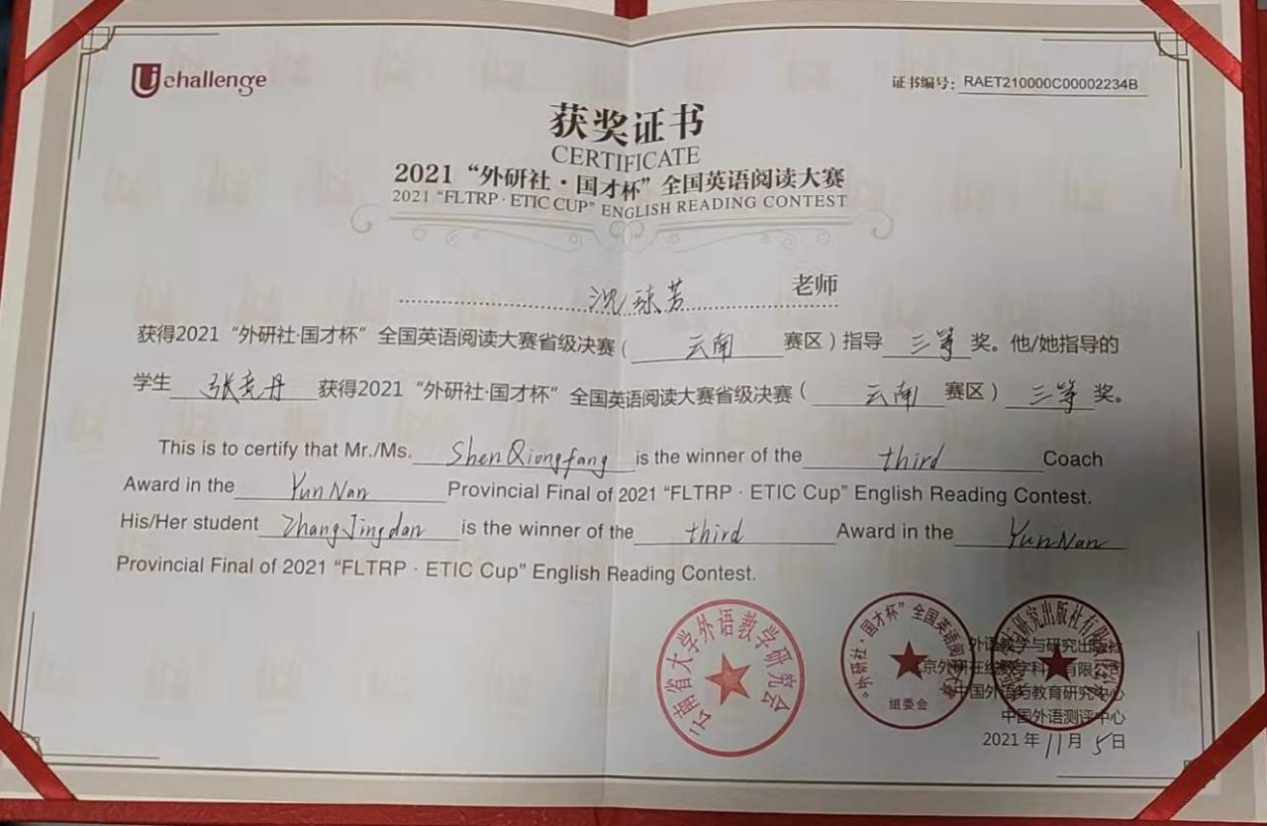 Uchallenge
证书编号: RAET210000C00002234B
获奖证书
CERTIFICATE
2021 “外研社·国才杯” 全国英语阅读大赛
2021 “FLTRP · ETIC CUP” ENGLISH READING CONTEST
沈琼芳 老师
获得2021 “外研社·国才杯” 全国英语阅读大赛省级决赛 ( 云南 赛区 ) 指导 三等 奖。他/她指导的
学生 张竞丹 获得2021 “外研社·国才杯” 全国英语阅读大赛省级决赛 ( 云南 赛区 ) 三等 奖。
This is to certify that Mr./Ms. Shen Qiongfang is the winner of the third Coach
Award in the YunNan Provincial Final of 2021 “FLTRP · ETIC Cup” English Reading Contest.
His/Her student Zhang Jingdan is the winner of the third Award in the YunNan
Provincial Final of 2021 “FLTRP · ETIC Cup” English Reading Contest.
云南省大学外语教学研究会
“外研社·国才杯” 全国英语阅读大赛
组委会
外语教学与研究出版社
北京外研在线教学科技有限公司
中国外语与教育研究中心
中国外语测评中心
2021 年 11 月 5 日